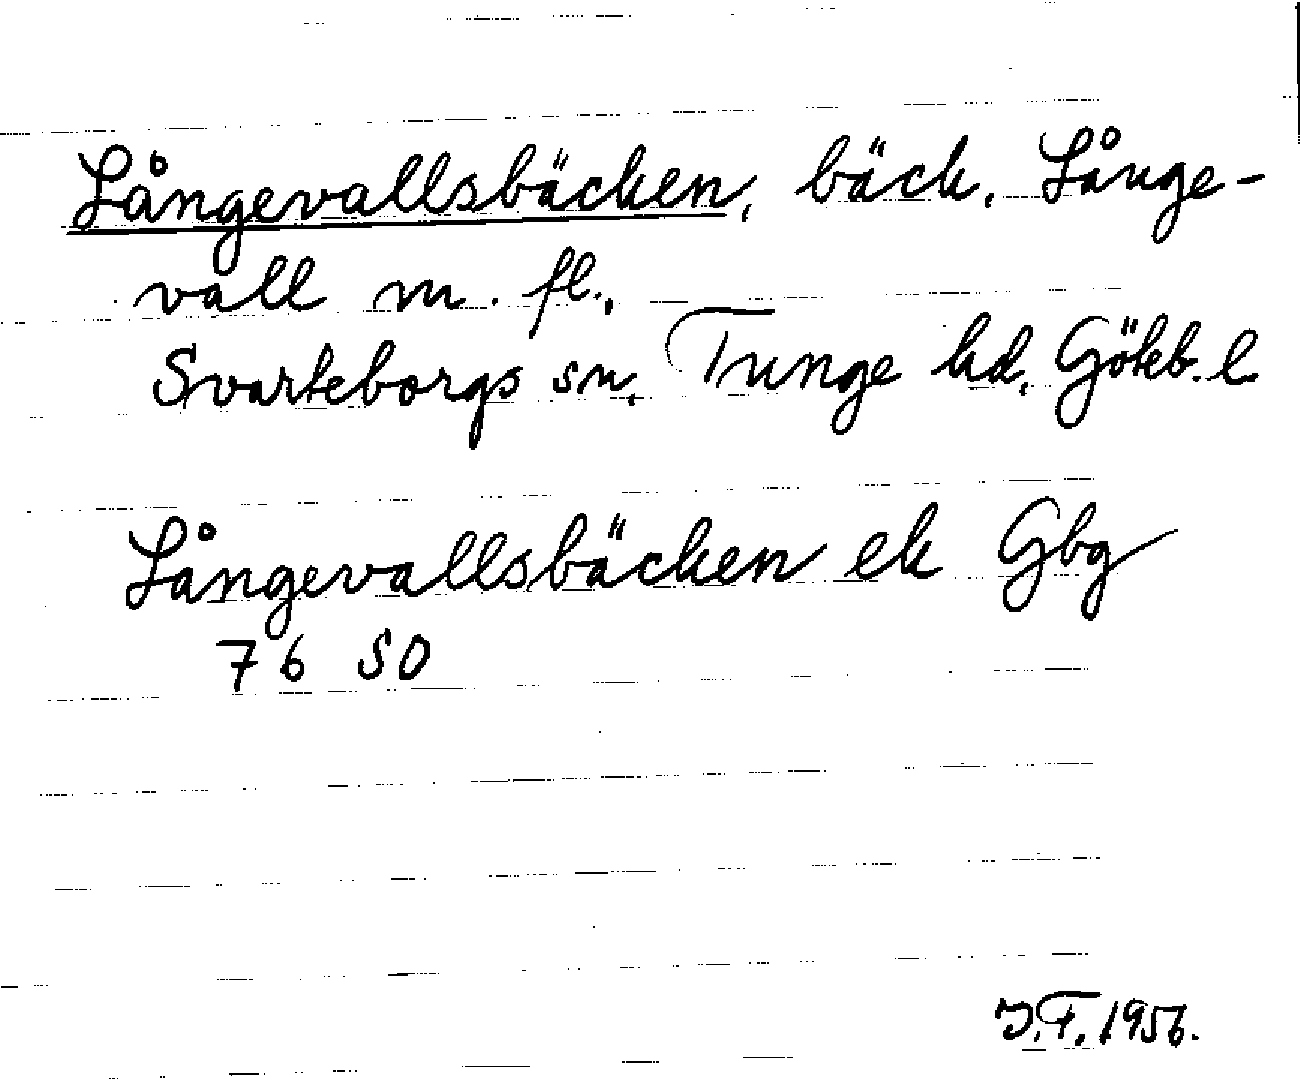 Långevallsbäcken, bäck, Långe-
vall m. fl.,
Svarteborgs sn, Tunge hd, Göteb. l
Långevallsbäcken ek Gbg
76 SO
J.F. 1956.